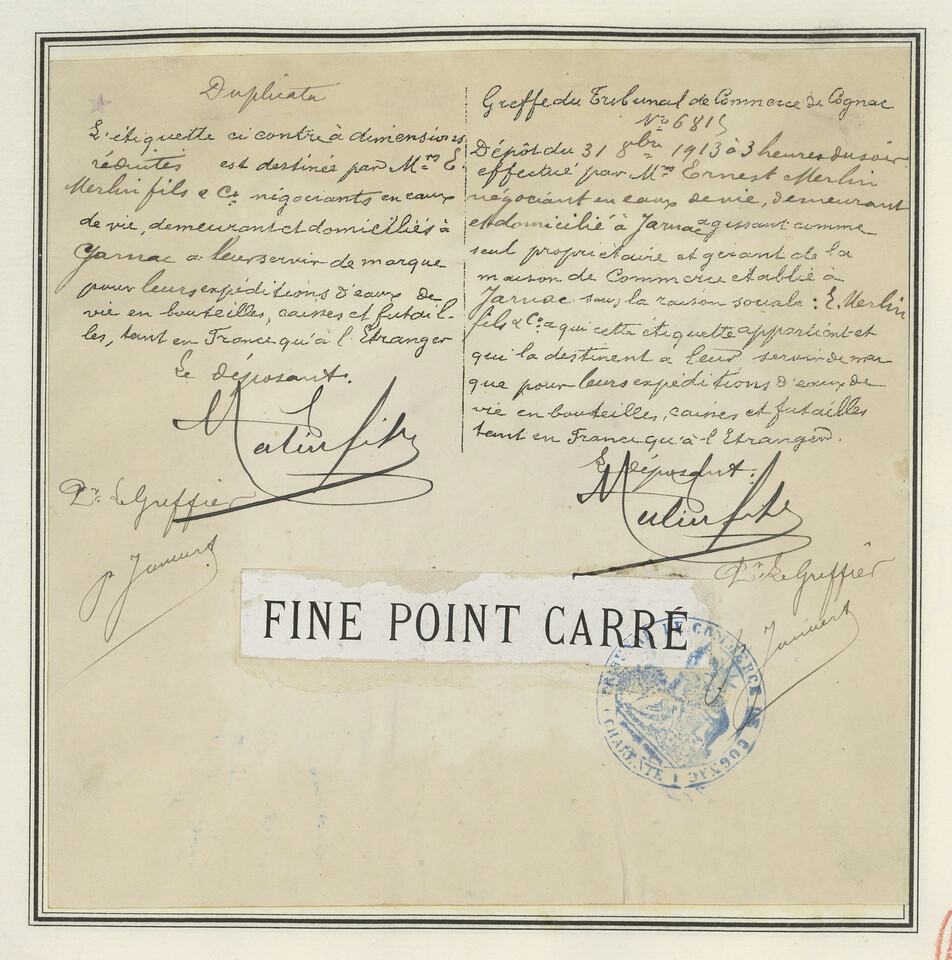 Duplicata
L'étiquette ci contre à dimensions
réduites est destinée par Mrs E.
Merlin fils & Co. négociants en eaux
de vie, demeurant et domiciliés à
Jarnac a leur servir de marque
pour leurs expéditions d'eaux de
vie en bouteilles, caisses et futail-
les, tant en France qu'à l'Etranger
Le déposant.
Merlin fils
Pr. Le Greffier
Greffe du Tribunal de Commerce de Cognac
No 6815
Dépôt du 31 8bre 1913 à 3 heures du soir
effectué par Mr Ernest Merlin
négociant en eaux de vie, demeurant
et domicilié à Jarnac agissant comme
seul propriétaire et gérant de la
maison de Commerce etablie à
Jarnac sous la raison sociale : E. Merlin
fils & Co. a qui cette étiquette appartient et
qui la destinent a leur servir de mar
que pour leurs expéditions d'eaux de
vie en bouteilles, caisses et futailles
tant en France qu'à l'Etranger.
Le déposant.
Merlin fils
Pr. Le Greffier
FINE POINT CARRÉ
TRIBUNAL DE COMMERCE DE COGNAC
CHARENTE